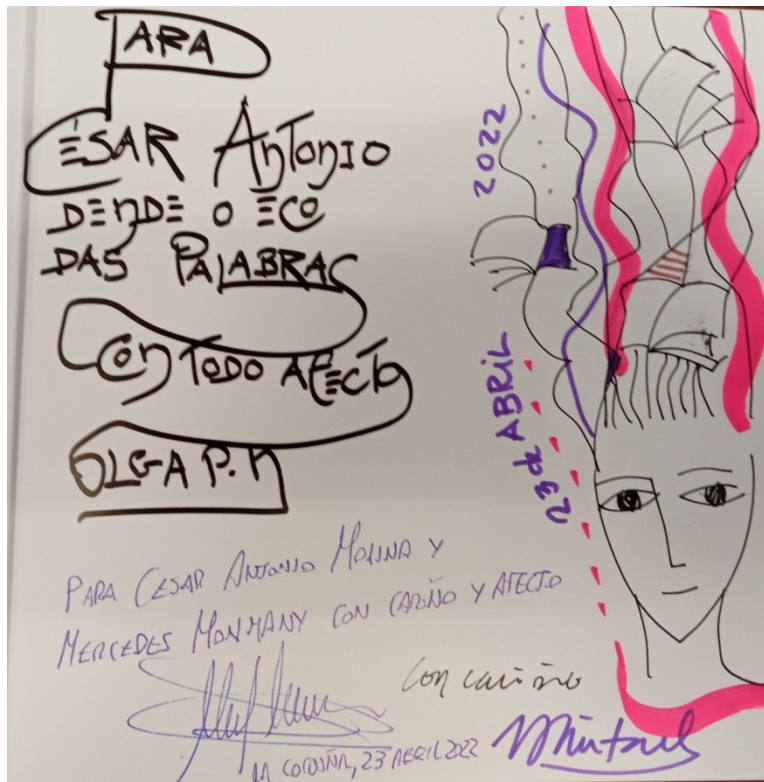 PARA
CÉSAR ANTONIO
DENDE O ECO
DAS PALABRAS
CON TODO AFECTO
OLGA P.N
2022
23 de ABRIL
PARA CESAR ANTONIO MOLINA Y
MERCEDES MONMANY CON CARIÑO Y AFECTO
Con cariño
LA CORUÑA, 23 ABRIL 2022